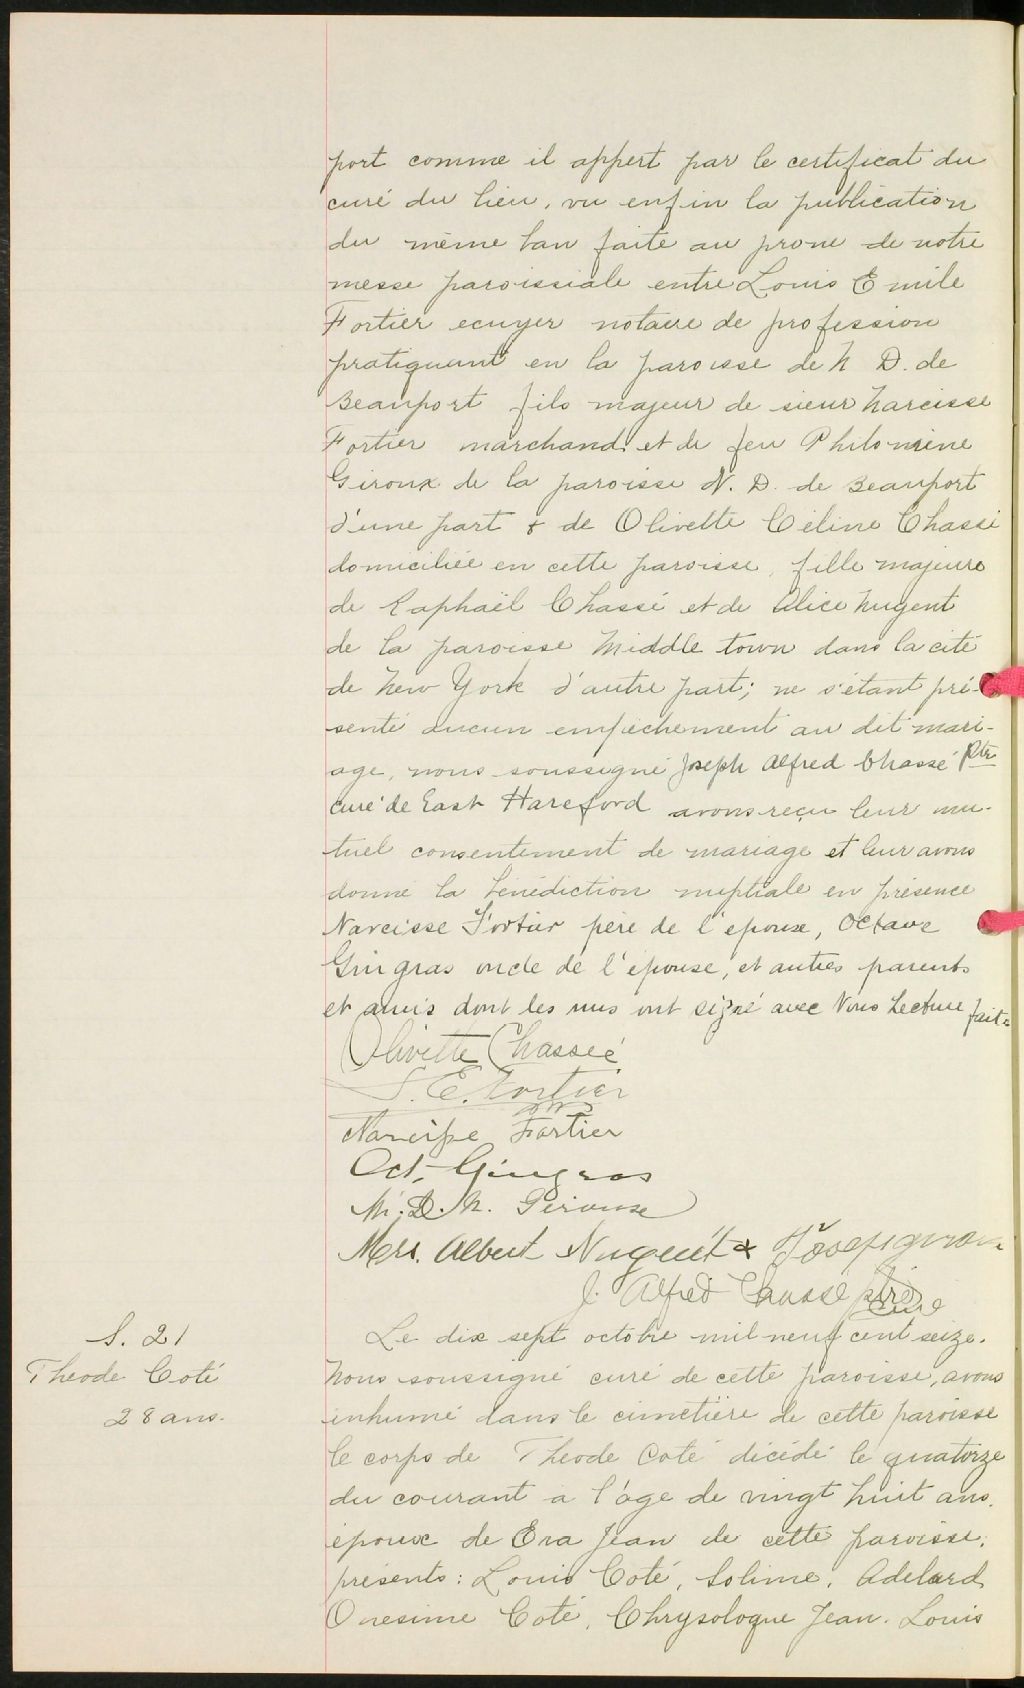 port comme il appert par le certificat du
curé du lieu, vu enfin la publication
du même ban faite au prone de notre
messe paroissiale entre Louis Emile
Fortier ecuyer notaire de profession
pratiquant en la paroisse de N. D. de
Beauport fils majeur de sieur Narcisse
Fortier marchand et de feu Philomène
Giroux de la paroisse N. D. de Beauport
d'une part & de Olivette Céline Chassé
domiciliée en cette paroisse, fille majeure
de Raphaël Chassé et de Alice Nugent
de la paroisse Middle town dans la cité
de New York d'autre part; ne s'étant pré-
senté aucun empêchement au dit mari-
age, nous soussigné Joseph Alfred Chassé Ptre
curé de East Hareford avons reçu leur mu-
tuel consentement de mariage et leur avons
donné la bénédiction nuptiale en présence
Narcisse Fortier père de l'époux, Octave
Gingras oncle de l'épouse, et autres parents
et amis dont les uns ont signé avec Nous Lecture faite
Olivette Chasseé
L. E. Fortier
Narcisse Fortier
Oct. Gingras
M. D. N.
Mrs. Albert Nugent &
J. Alfred Chassé ptre
curé
S. 21
Theode Coté
28 ans.
Le dix sept octobre mil neuf cent seize.
Nous soussigné curé de cette paroisse, avons
inhumé dans le cimetière de cette paroisse
le corps de Theode Coté décédé le quatorze
du courant a l'âge de vingt huit ans.
époux de Eva Jean de cette paroisse.
présents: Louis Coté, Solime, Adelard
Onesime Coté, Chrysologue Jean. Louis